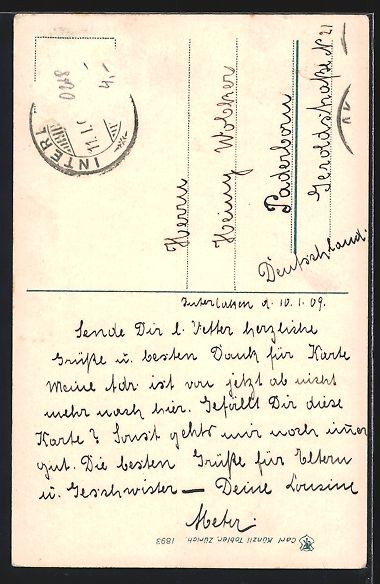 0268
4,-
INTERL
11.I.
Herrn
Heinr. Wolpper
Paderborn
Geroldstraße N. 21
Deutschland.
Interlaken d. 10.1.09.
Sende Dir l. Vetter herzliche
Grüße u. besten Dank für Karte
Meine Adr. ist von jetzt ab nicht
mehr nach hier. Gefällt Dir diese
Karte? Sonst gehts mir noch imer
gut. Die besten Grüße für Eltern
u. Geschwister — Deine Cousine
Meta.
Carl Künzli Tobler, Zürich. 1893